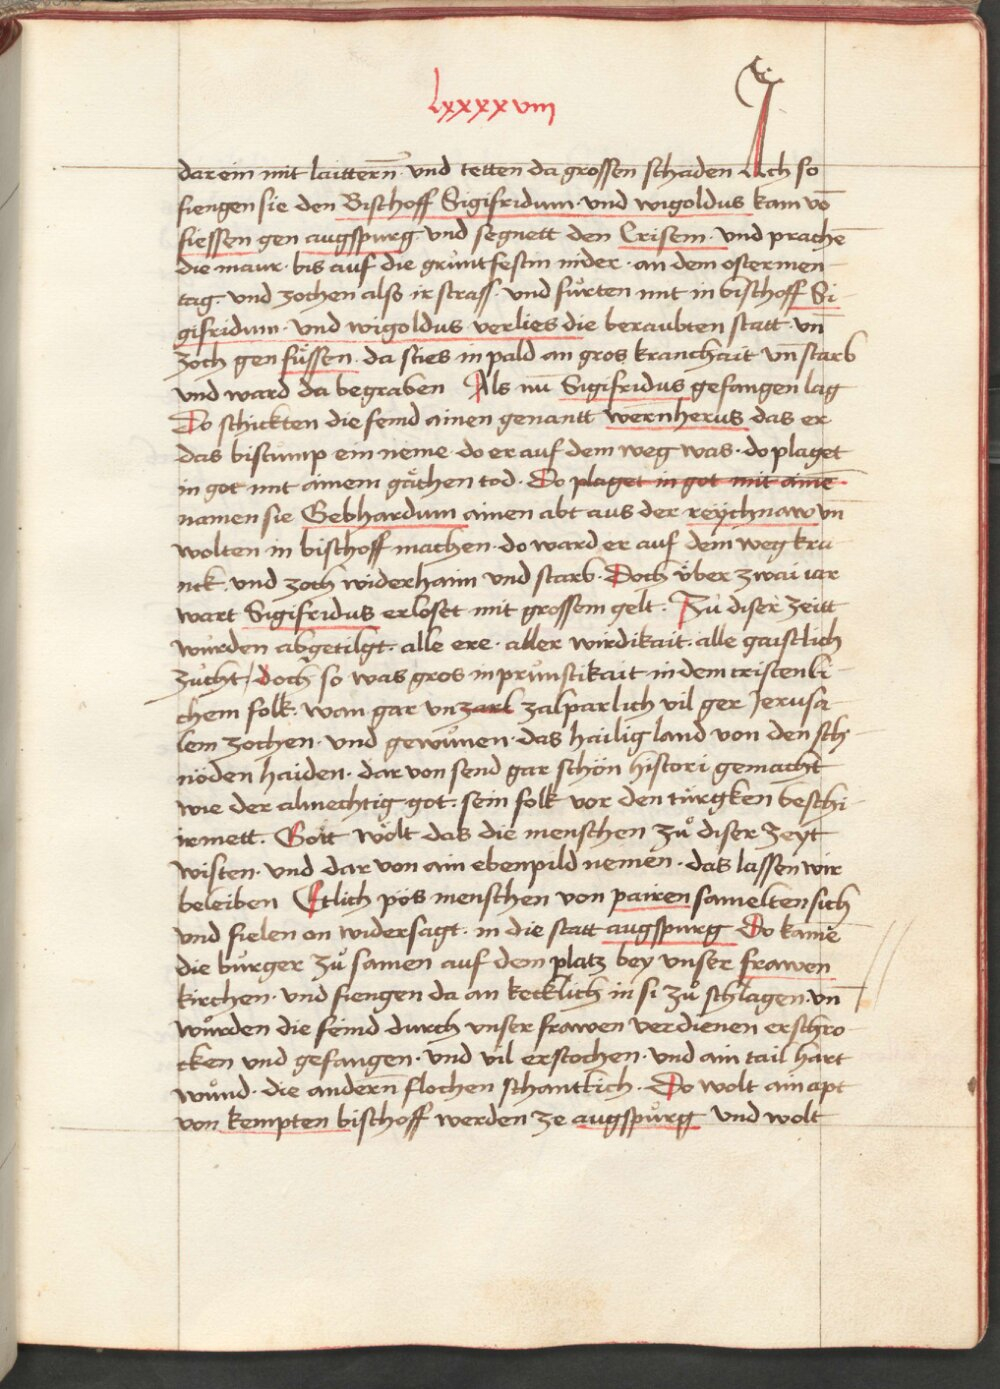 lxxxxviii
darein mit laittern̄ · und tetten da grossen schaden Ach so
fiengen sie den Bischoff Sigifridum · und wigoldus kam vō
fiessen gen augspurg · und segnett den Crisem · und prachē
die maur · bis auf die gruntfestin nider · an dem ostermen
tag · und zochen alß ir strass · und fůrten mit in bischoff Si-
gifridum · und wigoldus verlies die beraubten statt · vn̄
zoch gen füssen · da sties in pald an gros kranchait vn̄ starb
und ward da begraben Als nu̅ Sigifridus gefangen lag
Do schickten die feind ainen genantt wernherus das er
das bistump ein neme · do er auf dem weg was · do plaget
in got mit ainem gächen tod · Do plaget in got mit ainē
namen sie Gebhardum ainen abt aus der reychnaw vn̄
wolten in bischoff machen · do ward er auf dem weg kra-
nck · und zoch widerhaim und starb · Doch über zwai iar
wart Sigifridus erloset mit grossem gelt · Zů diser zeitt
wurden abgetilgt · alle ere · aller wirdikait · alle gaistlich
zucht / doch so was gros in prünstikait · in dem cristenli-
chem folk · wan gar vnzarl zalparlich vil ger Jerusa-
lem zochen · und gewůnen · das hailig land von den sch-
nöden haiden · dar von send gar schön histori gemacht
wie der almechtig got · sein folk vor den türgken beschi-
irmett · Gott wölt das die menschen zů diser zeyt
wisten · und dar von ain ebenpild nemen · das lassen wir
beleiben Etlich pös menschen von pairen samelten sich
und fielen on widersagt · in die statt augspurg Do kamē
die burger zů samen auf dem platz bey unser frawen
kirchen · und fiengen da an kecklich in si zů schlagen · vn̄
wůrden die feind durch unser frawen verdienen erschro-
cken und gefangen · und vil erstochen · und ain tail hart
wůnd · die andern̄ flochen schantlich · Do wolt ain apt
von kempten bischoff werden ze augspůrg und wolt